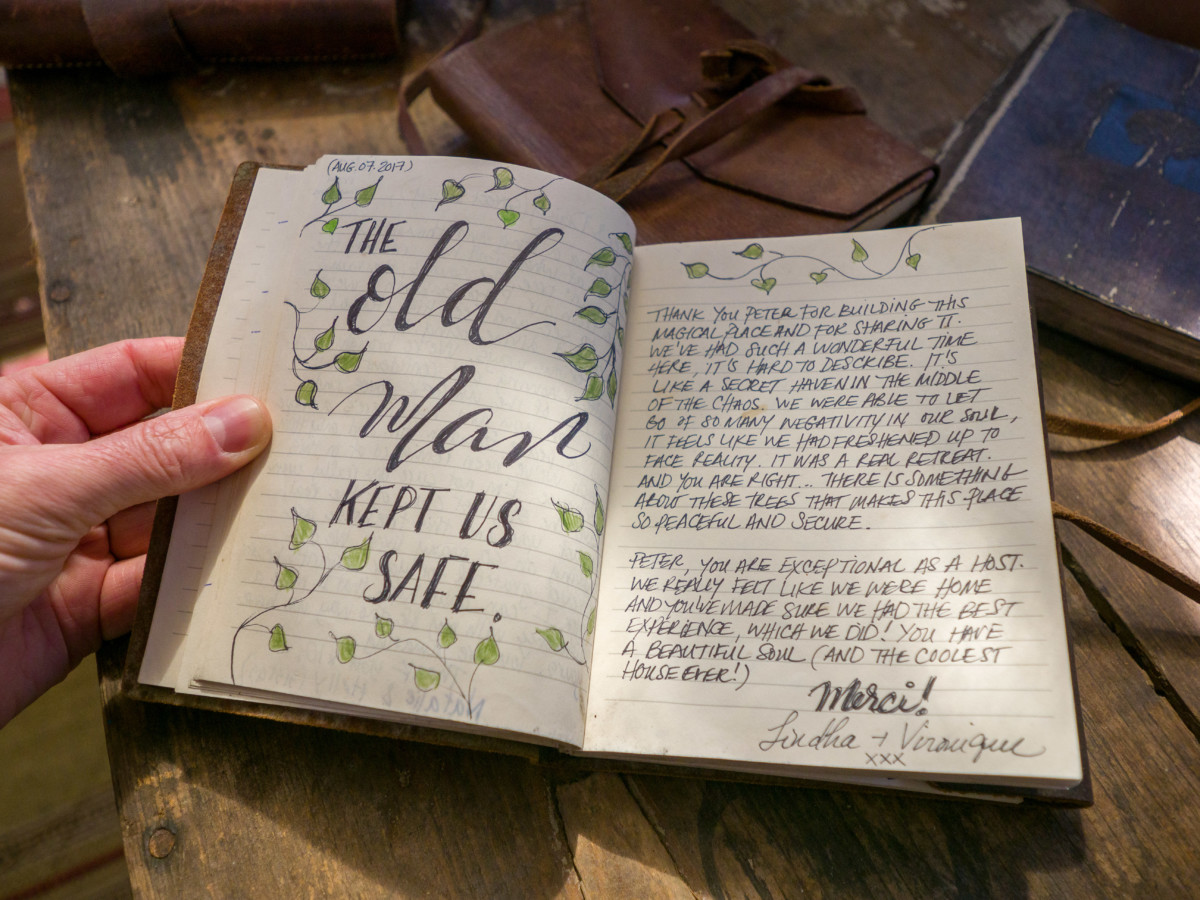 (AUG.07.2017)
THE
old
Man
KEPT US
SAFE.
THANK YOU PETER FOR BUILDING THIS
MAGICAL PLACE AND FOR SHARING IT.
WE'VE HAD SUCH A WONDERFUL TIME
HERE, IT'S HARD TO DESCRIBE. IT'S
LIKE A SECRET HAVEN IN THE MIDDLE
OF THE CHAOS. WE WERE ABLE TO LET
GO OF SO MANY NEGATIVITY IN OUR SOUL,
IT FEELS LIKE WE HAD FRESHENED UP TO
FACE REALITY. IT WAS A REAL RETREAT.
AND YOU ARE RIGHT... THERE IS SOMETHING
ABOUT THESE TREES THAT MAKES THIS PLACE
SO PEACEFUL AND SECURE.
PETER, YOU ARE EXCEPTIONAL AS A HOST.
WE REALLY FELT LIKE WE WERE HOME
AND YOU'VE MADE SURE WE HAD THE BEST
EXPERIENCE, WHICH WE DID! YOU HAVE
A BEAUTIFUL SOUL (AND THE COOLEST
HOUSE EVER!)
Merci!
+ Véronique
xxx